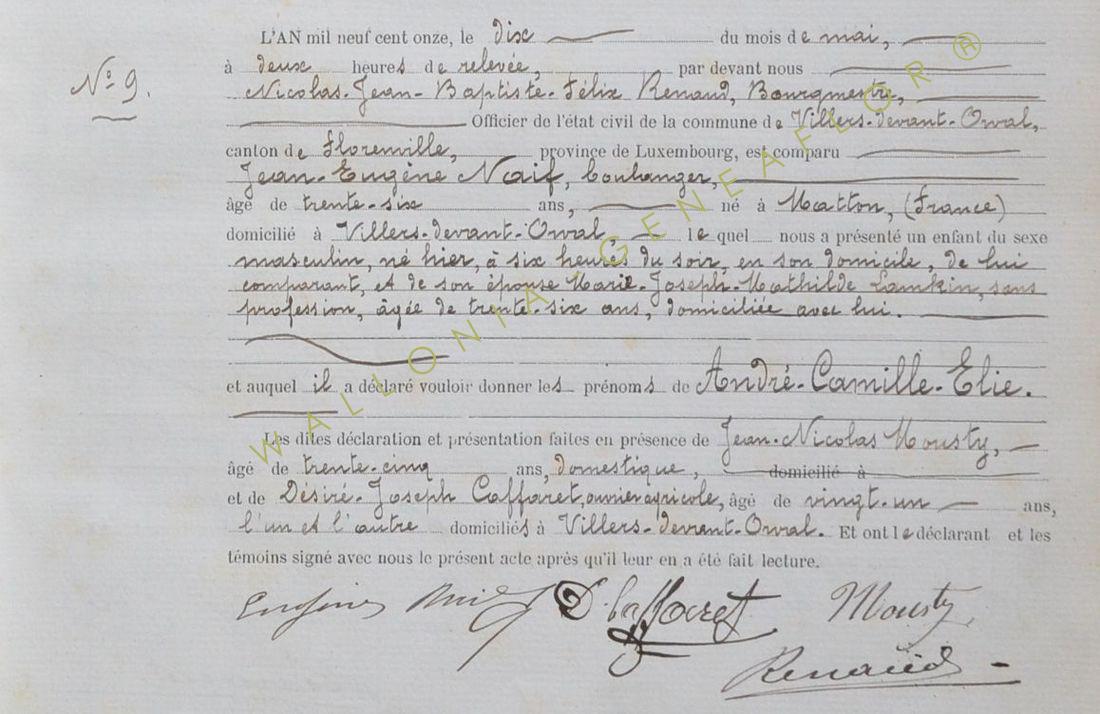 L'AN mil neuf cent onze, le dix du mois de mai,
N° 9.
à deux heures de relevée, par devant nous
Nicolas-Jean-Baptiste-Félix Renaud, Bourgmestre,
Officier de l'état civil de la commune de Villers-devant-Orval,
canton de Florenville, province de Luxembourg, est comparu
Jean-Eugène Naif, boulanger,
âgé de trente-six ans, né à Matton, (France)
domicilié à Villers-devant-Orval, lequel nous a présenté un enfant du sexe
masculin, né hier, à six heures du soir, en son domicile, de lui
comparant, et de son épouse Marie-Joseph-Mathilde Lamkin, sans
profession, âgée de trente-six ans, domiciliée avec lui.
et auquel il a déclaré vouloir donner les prénoms de André-Camille-Elie.
Les dites déclaration et présentation faites en présence de Jean-Nicolas Mousty,
âgé de trente-cinq ans, domestique, domicilié à
et de Désiré-Joseph Caffaret, ouvrier agricole, âgé de vingt-un ans,
l'un et l'autre domiciliés à Villers-devant-Orval. Et ont le déclarant et les
témoins signé avec nous le présent acte après qu'il leur en a été fait lecture.
D. Caffaret Mousty
Renaud
WALLONIA GENEAFLOR ®